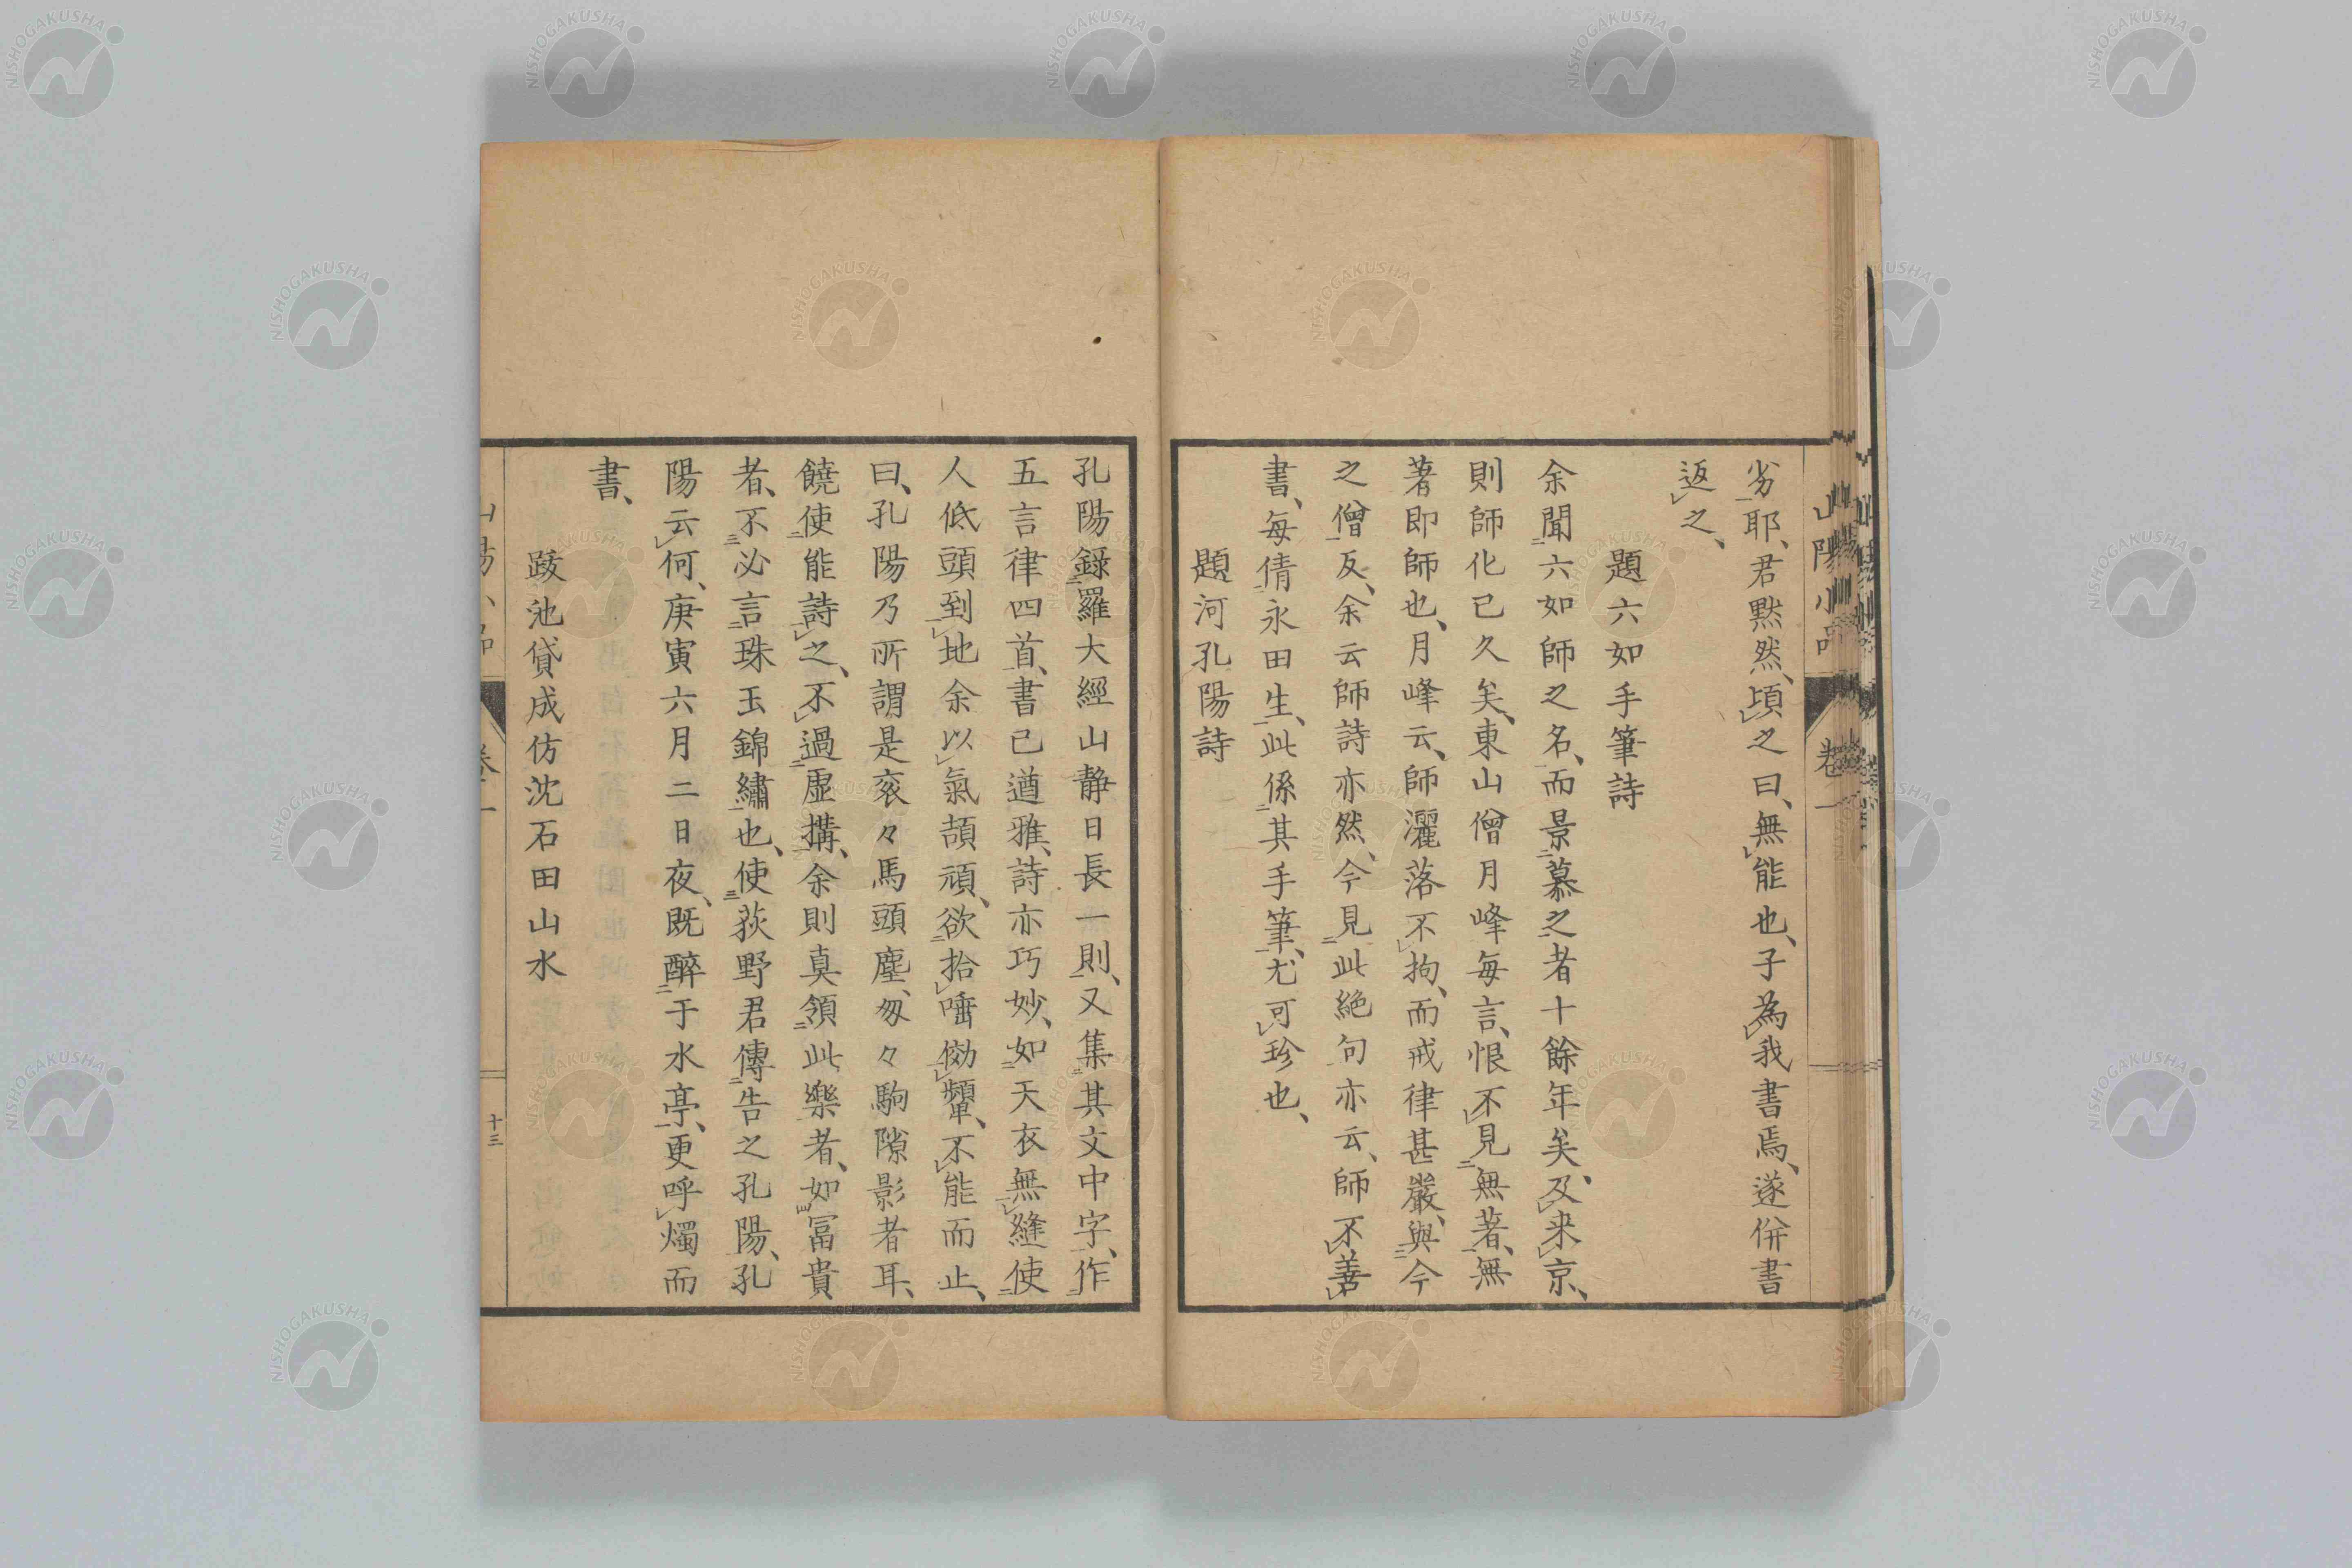 山陽小品 卷一
劣耶、君黙然、頃之曰、無能也、子為我書焉、遂併書
返之、
題六如手筆詩
余聞六如師之名、而景慕之者十餘年矣、及来京、
則師化已久矣、東山僧月峰每言、恨不見無著、無
著即師也、月峰云、師灑落不拘、而戒律甚嚴、與今
之僧反、余云師詩亦然、今見此絶句亦云、師不善
書、每倩永田生、此係其手筆、尤可珍也、
題河孔陽詩
孔陽錄羅大經山静日長一則、又集其文中字、作
五言律四首、書已遒雅、詩亦巧妙、如天衣無縫使
人低頭到地余以氣頡頑、欲拾唾傚顰、不能而止、
曰、孔陽乃所謂是衮々馬頭塵、匆々駒隙影者耳、
饒使能詩之、不過虛搆、余則真領此樂者、如冨貴
者、不必言珠玉錦繡也、使荻野君傳告之孔陽、孔
陽云何、庚寅六月二日夜、既醉于水亭、更呼燭而
書、
跋池貸成仿沈石田山水
十三
NISHOGAKUSHA